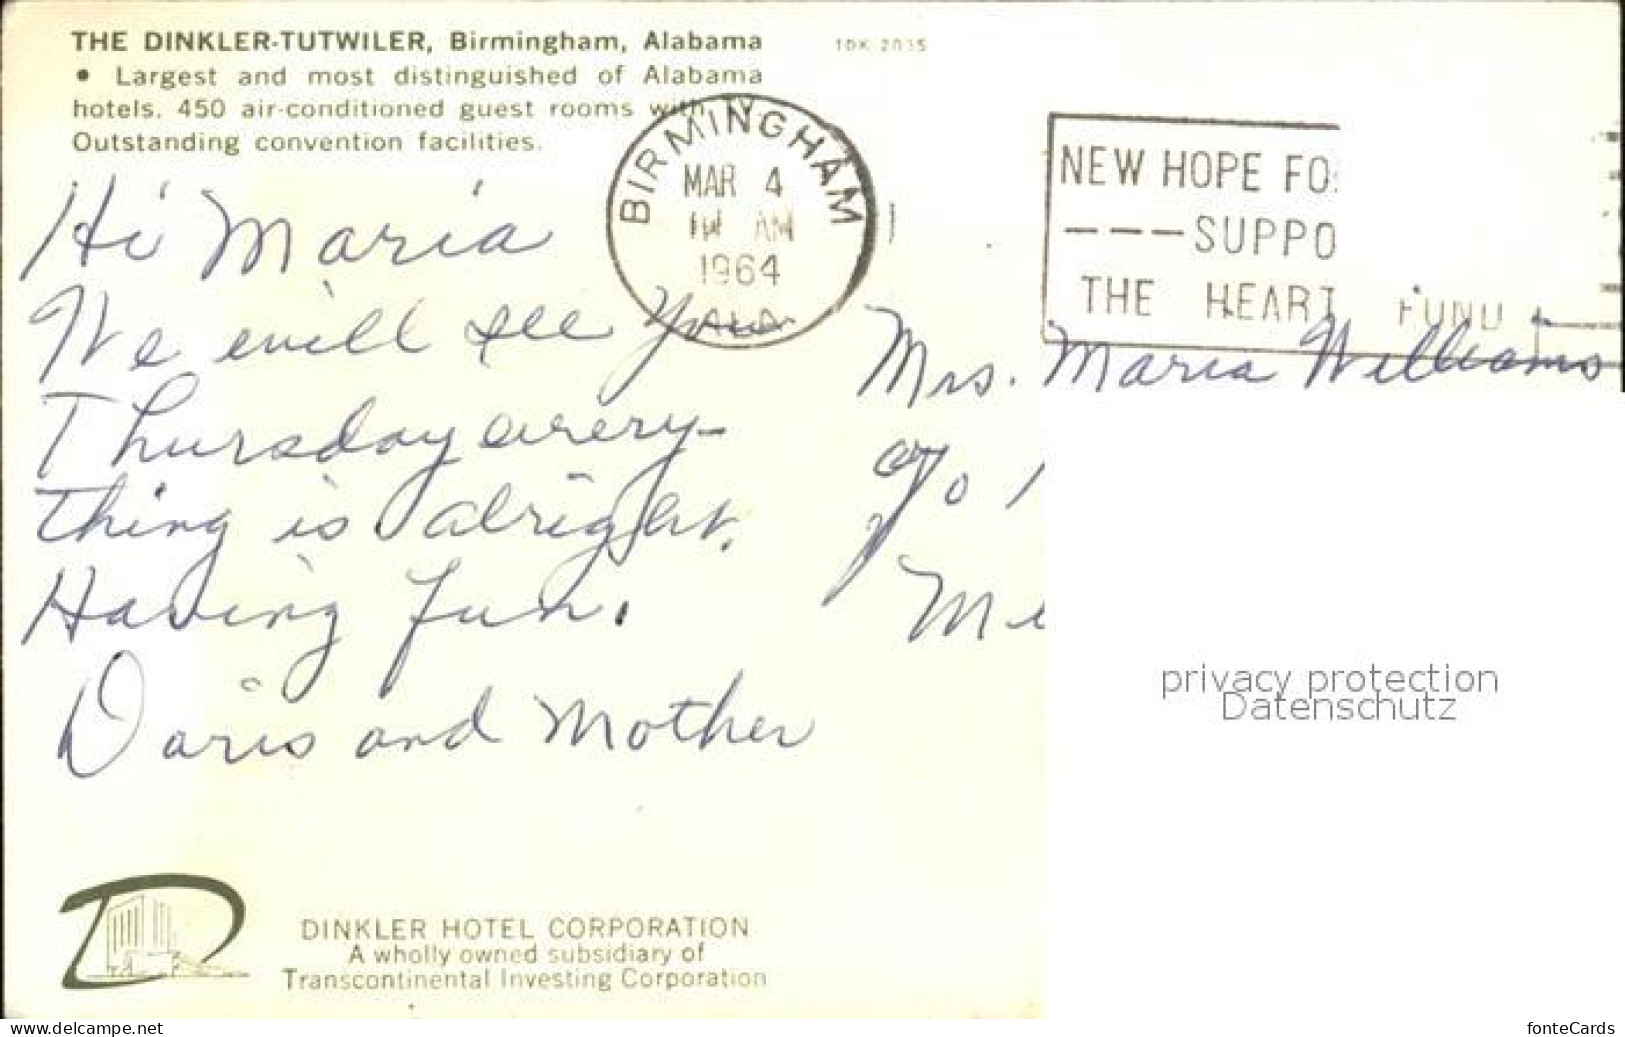 THE DINKLER-TUTWILER, Birmingham, Alabama
• Largest and most distinguished of Alabama
hotels. 450 air-conditioned guest rooms with TV
Outstanding convention facilities.
BIRMINGHAM
MAR 4
AM
1964
ALA.
NEW HOPE FO
---SUPPO
THE HEART FUND
Hi Maria
We will see you
Thursday every-
thing is alright.
Having fun.
Doris and Mother
Mrs. Maria Williams
privacy protection
Datenschutz
DINKLER HOTEL CORPORATION
A wholly owned subsidiary of
Transcontinental Investing Corporation
www.delcampe.net
fonteCards